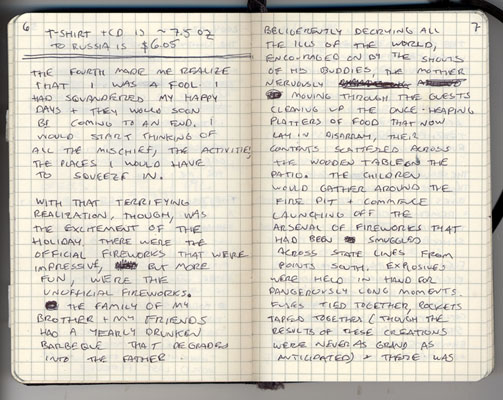 6
T-SHIRT + CD IS ~ 7.5 OZ
TO RUSSIA IS $6.05
THE FOURTH MADE ME REALIZE
THAT I WAS A FOOL. I
HAD SQUANDERED MY HAPPY
DAYS + THEY WOULD SOON
BE COMING TO AN END. I
WOULD START THINKING OF
ALL THE MISCHIEF, THE ACTIVITIES,
THE PLACES I WOULD HAVE
TO SQUEEZE IN.
WITH THAT TERRIFYING
REALIZATION, THOUGH, WAS
THE EXCITEMENT OF THE
HOLIDAY. THERE WERE THE
OFFICIAL FIREWORKS THAT WERE
IMPRESSIVE, BUT MORE
FUN, WERE THE
UNOFFICIAL FIREWORKS.
THE FAMILY OF MY
BROTHER + MY FRIENDS
HAD A YEARLY DRUNKEN
BARBEQUE THAT DEGRADES
INTO THE FATHER
7
BELIGERENTLY DECRYING ALL
THE ILLS OF THE WORLD,
ENCOURAGED ON BY THE SHOUTS
OF HIS BUDDIES, THE MOTHER
NERVOUSLY
MOVING THROUGH THE GUESTS
CLEARING UP THE ONCE-HEAPING
PLATTERS OF FOOD THAT NOW
LAY IN DISARRAY, THEIR
CONTENTS SCATTERED ACROSS
THE WOODEN TABLE ON THE
PATIO. THE CHILDREN
WOULD GATHER AROUND THE
FIRE PIT + COMMENCE
LAUNCHING OFF THE
ARSENAL OF FIREWORKS THAT
HAD BEEN SMUGGLED
ACROSS STATE LINES FROM
POINTS SOUTH. EXPLOSIVES
WERE HELD IN HAND FOR
DANGEROUSLY LONG MOMENTS,
FUSES TIED TOGETHER, ROCKETS
TAPED TOGETHER (THOUGH THE
RESULTS OF THESE CREATIONS
WERE NEVER AS GRAND AS
ANTICIPATED) + THERE WAS